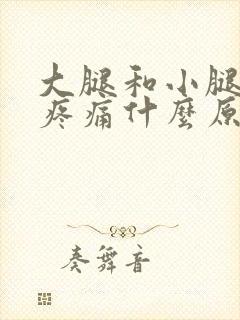 大腿和小腿
疼痛什麼原
奏舞音